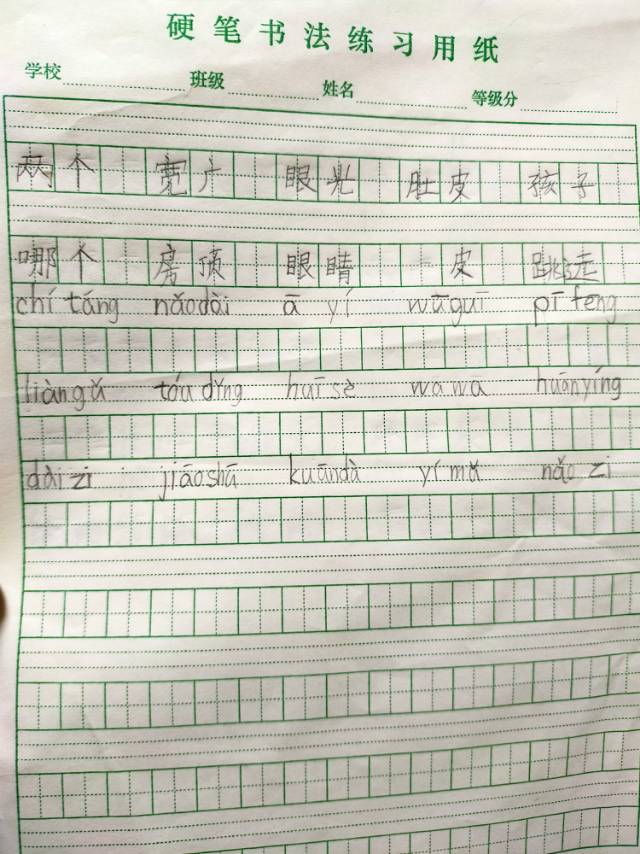 硬笔书法练习用纸
学校 班级 姓名 等级分
两个 宽广 眼光 肚皮 孩子
哪个 房顶 眼睛 皮 跳走
chí táng nǎodài ā yí wūguī pī fēng
liàngǔ tóu dǐng huī sè wa wa huānyíng
dài zi jiāoshū kuāndà yí mǔ nǎo zi